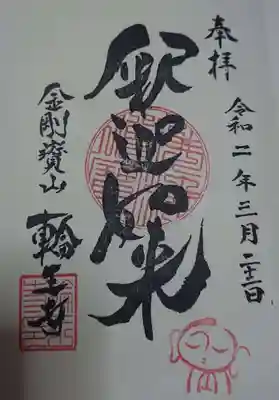 奉拝
令和二年三月二十二日
釈迦如来
金剛寳山
輪王寺